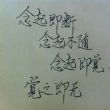 念起即断
念起不随
念起即觉
觉之即无